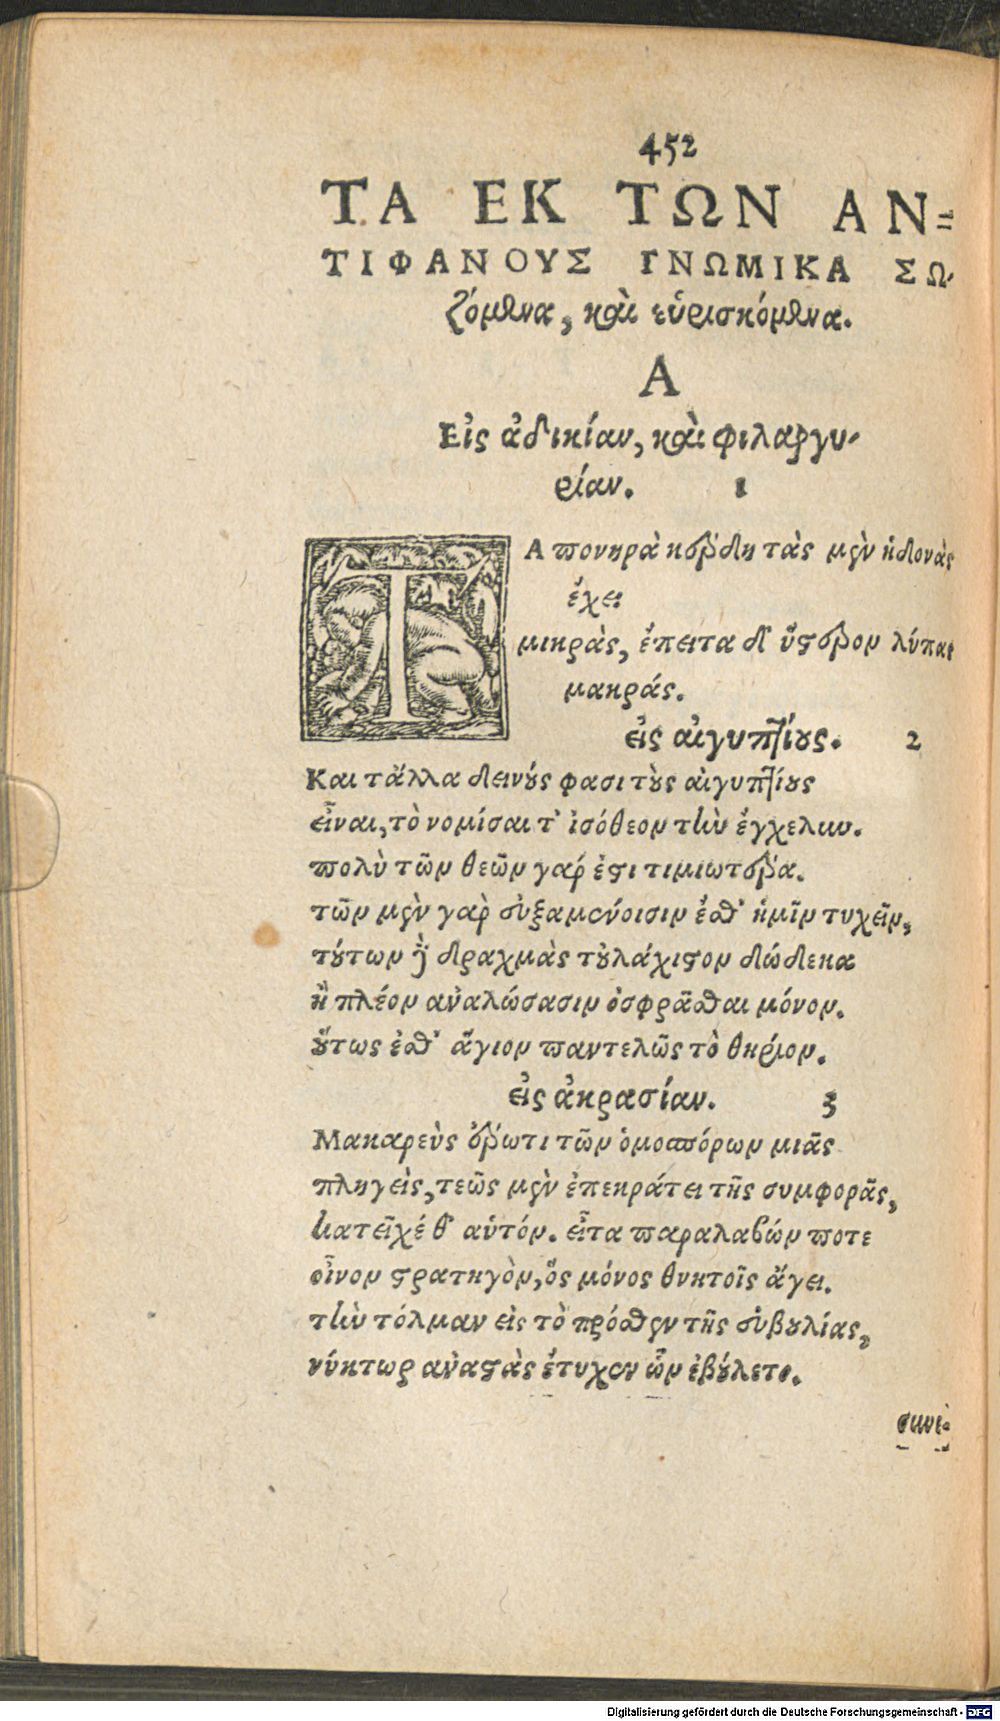 452
ΤΑ ΕΚ ΤΩΝ ΑΝ=
ΤΙΦΑΝΟΥΣ ΓΝΩΜΙΚΑ ΣΩ-
ζόμενα, καὶ εὑρισκόμενα.
Α
Εἰς ἀδικίαν, καὶ φιλαργυ-
ρίαν. 1
ΤΑ πονηρὰ κέρδη τὰς μὲν ἡδονὰς
ἔχει
μικρὰς, ἔπειτα δ' ὕστερον λύπας
μακράς.
εἰς αἰγυπτίους. 2
Και τἄλλα δεινούς φασι τοὺς αἰγυπτίους
εἶναι, τὸ νομίσαι τ' ἰσόθεον τὴν ἔγχελυν.
πολὺ τῶν θεῶν γάρ ἐστι τιμιωτέρα.
τῶν μὲν γὰρ εὐξαμένοισιν ἔσθ' ἡμῖν τυχεῖν,
τούτων δὲ δραχμὰς τοὐλάχιστον δώδεκα
ἢ πλέον ἀναλώσασιν ὀσφρᾶσθαι μόνον.
οὕτως ἔσθ' ἅγιον παντελῶς τὸ θηρίον.
εἰς ἀκρασίαν. 3
Μακαρεὺς ἔρωτι τῶν ὁμοσπόρων μιᾶς
πληγεὶς, τεῶς μὲν ἐπεκράτει τῆς συμφορᾶς,
κατεῖχέ θ' αὑτόν. εἶτα παραλαβών ποτε
οἶνον στρατηγὸν, ὃς μόνος θνητοῖς ἄγει.
τὴν τόλμαν εἰς τὸ πρόσθεν τῆς εὐβουλίας,
νύκτωρ ἀναστὰς ἔτυχεν ὧν ἐβούλετο.
συνε-
Digitalisierung gefördert durch die Deutsche Forschungsgemeinschaft - DFG